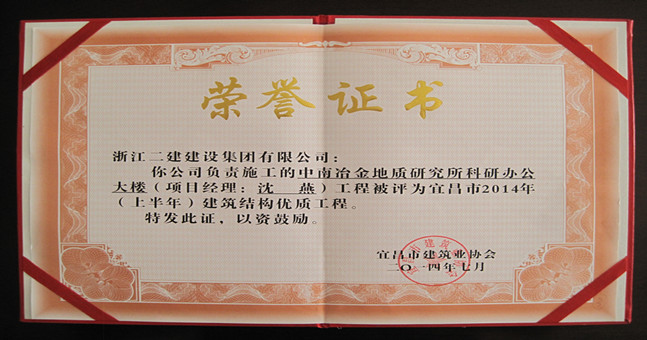 荣誉证书
浙江二建建设集团有限公司：
你公司负责施工的中南冶金地质研究所科研办公
大楼（项目经理：沈 燕）工程被评为宜昌市2014年
（上半年）建筑结构优质工程。
特发此证，以资鼓励。
宜昌市建筑业协会
二〇一四年七月